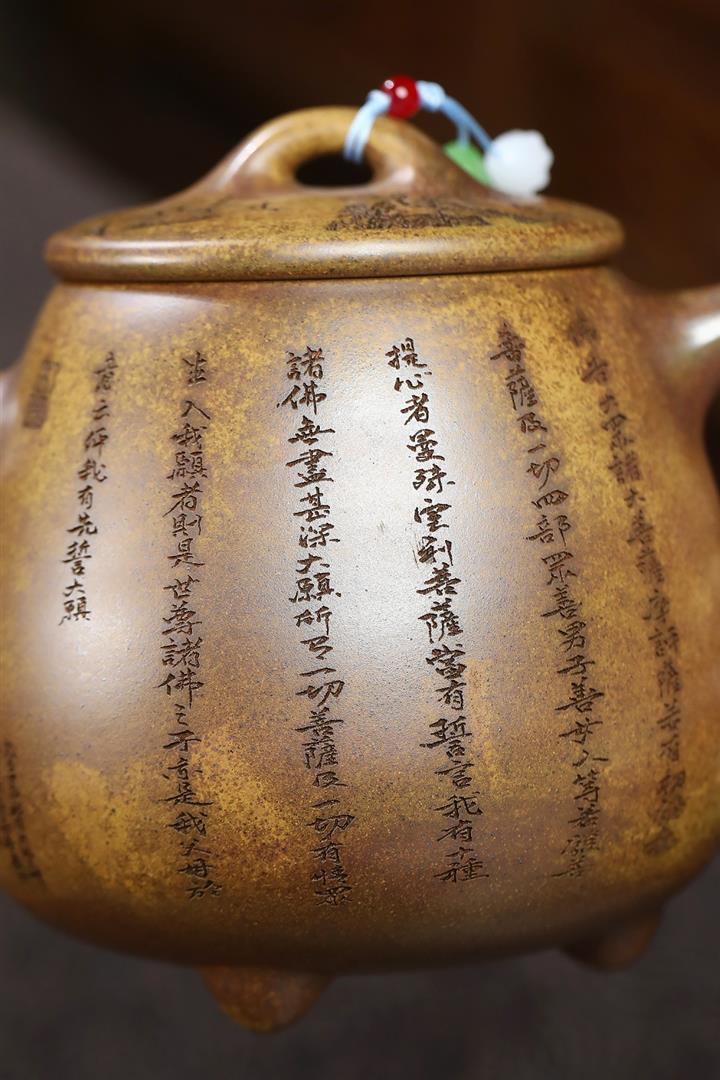 告大眾諸大菩薩摩訶薩若有
菩薩及一切四部眾善男子善女人等若菩
提心者曼殊室利菩薩當有誓言我有十種
諸佛無盡甚深大願所有一切菩薩及一切有情眾
生入我願者則是世尊諸佛之子亦是我父母於
意云何我有先誓大願